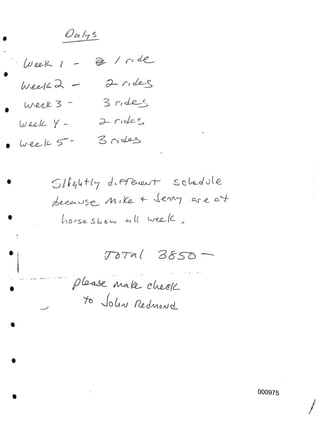 Days
Week 1 - 1 ride
Week 2 - 2 rides
Week 3 - 3 rides
Week 4 - 2 rides
Week 5 - 3 rides
Slightly different schedule
because Mike + Jenny are at
horse show all week.
TOTAL 3850 —
please make check
to John Redmond
000975